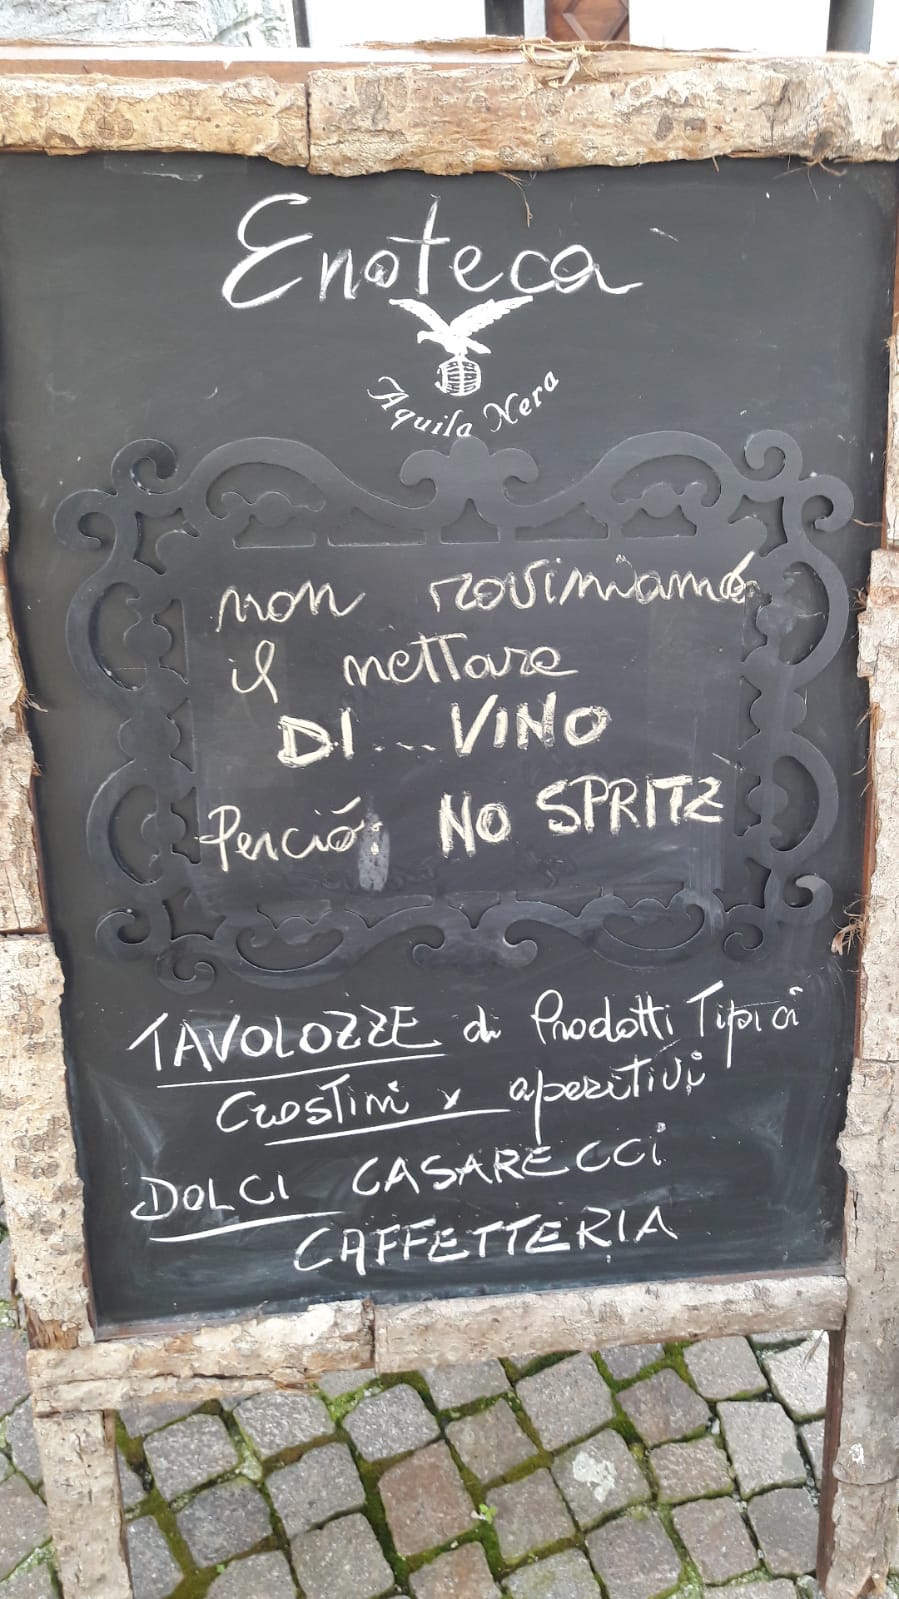 Enoteca
Aquila Nera
non roviniamo
il nettare
DI...VINO
Perció: NO SPRITZ
TAVOLOZZE di Prodotti Tipici
Crostini x aperitivi
DOLCI CASARECCI
CAFFETTERIA